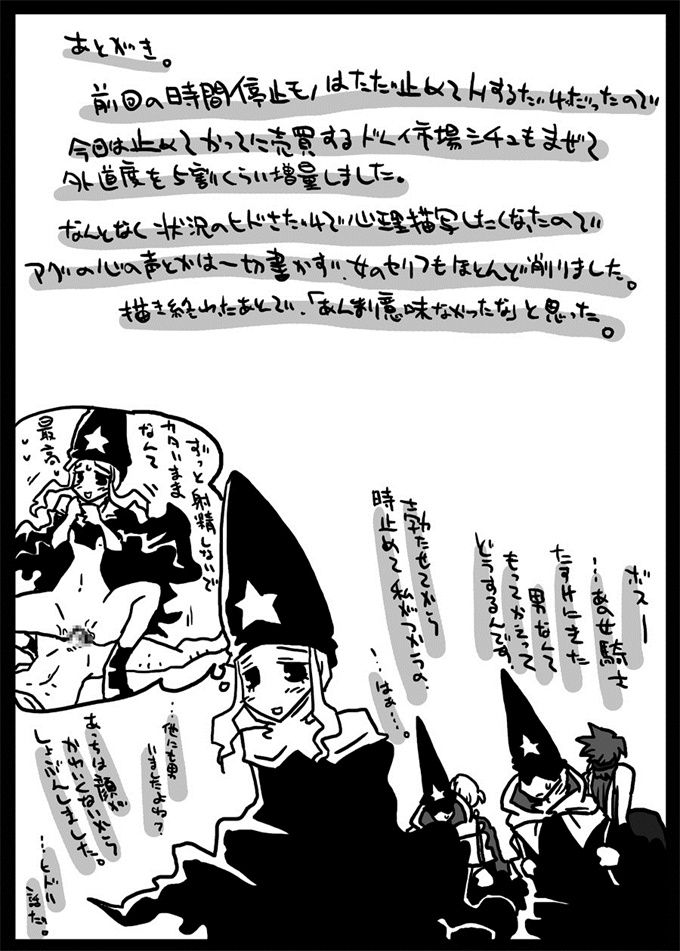 あとがき。
前回の時間停止モノはただ止めてHするだけだったので
今回は止めてかってに売買するドレイ市場シチュもまぜて
外道度を5割くらい増量しました。
なんとなく状況のヒドさだけで心理描写したくなったので
アグの心の声とかは一切書かず、女のセリフもほとんど削りました。
描き終わったあとで、「あんま意味なかったな」と思った。
ボスー
…あの女騎士
たすけにきた
男なんて
もってかえって
どうするんです。
勃たせてから
時止めて私がつかうの。
…はぁ…。
ずっと射精しないで
カタいまま
なんて
最高
…他にも男
いましたよね?
あっちは顔が
かわいくないから
しょぶんしました。
…ヒドい
話だ。